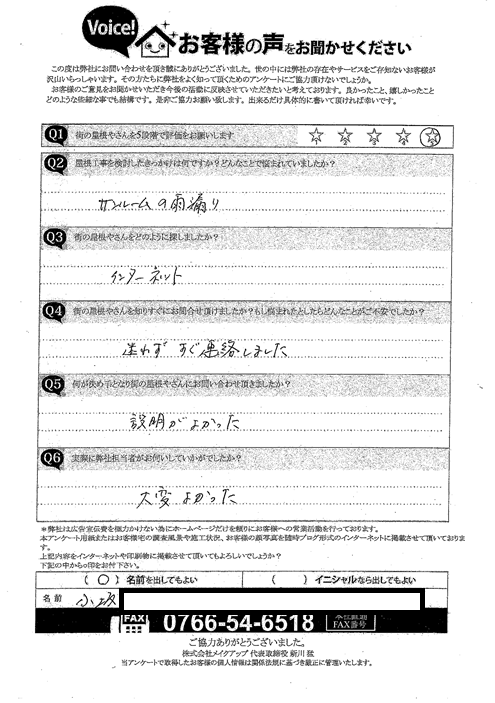 Voice!
お客様の声をお聞かせください
この度は弊社にお問い合わせを頂き誠にありがとうございました。世の中には弊社の存在やサービスをご存知ないお客様が
沢山いらっしゃいます。その方たちに弊社をよく知って頂くためのアンケートにご協力頂けないでしょうか。
お客様のご意見をお聞かせいただき今後の活動に反映させていただきたいと考えております。良かったこと、嬉しかったこと
どのような些細な事でも結構です。是非ご協力お願い致します。出来るだけ具体的に書いて頂ければ幸いです。
Q1 街の屋根やさんを5段階で評価をお願いします
1 2 3 4 5
Q2 屋根工事を検討したきっかけは何ですか?どんなことで悩まれていましたか?
サンルームの雨漏り
Q3 街の屋根やさんをどのように探しましたか?
インターネット
Q4 街の屋根やさんを知りすぐにお問合せ頂けましたか?もし悩まれたとしたらどんなことがご不安でしたか?
迷わず すぐ連絡しました
Q5 何が決め手となり街の屋根やさんにお問い合わせ頂きましたか?
説明がよかった
Q6 実際に弊社担当者がお伺いしていかがでしたか?
大変 よかった
*弊社は広告宣伝費を極力かけない為にホームページだけを頼りにお客様への営業活動を行っております。
本アンケート用紙またはお客様宅の調査風景や施工状況、お客様の顔写真を随時ブログ形式のインターネットに掲載させて頂いておりま
す。
上記内容をインターネットや印刷物に掲載させて頂いてもよろしいでしょうか?
下記の中から○印をお付下さい。
(○)名前を出してもよい ( )イニシャルなら出してもよい
名前 小坂
FAX 0766-54-6518 FAX番号
ご協力ありがとうございました。
株式会社メイクアップ 代表取締役 新川 猛
当アンケートで取得したお客様の個人情報は関係法規に基づき厳正に管理いたします。